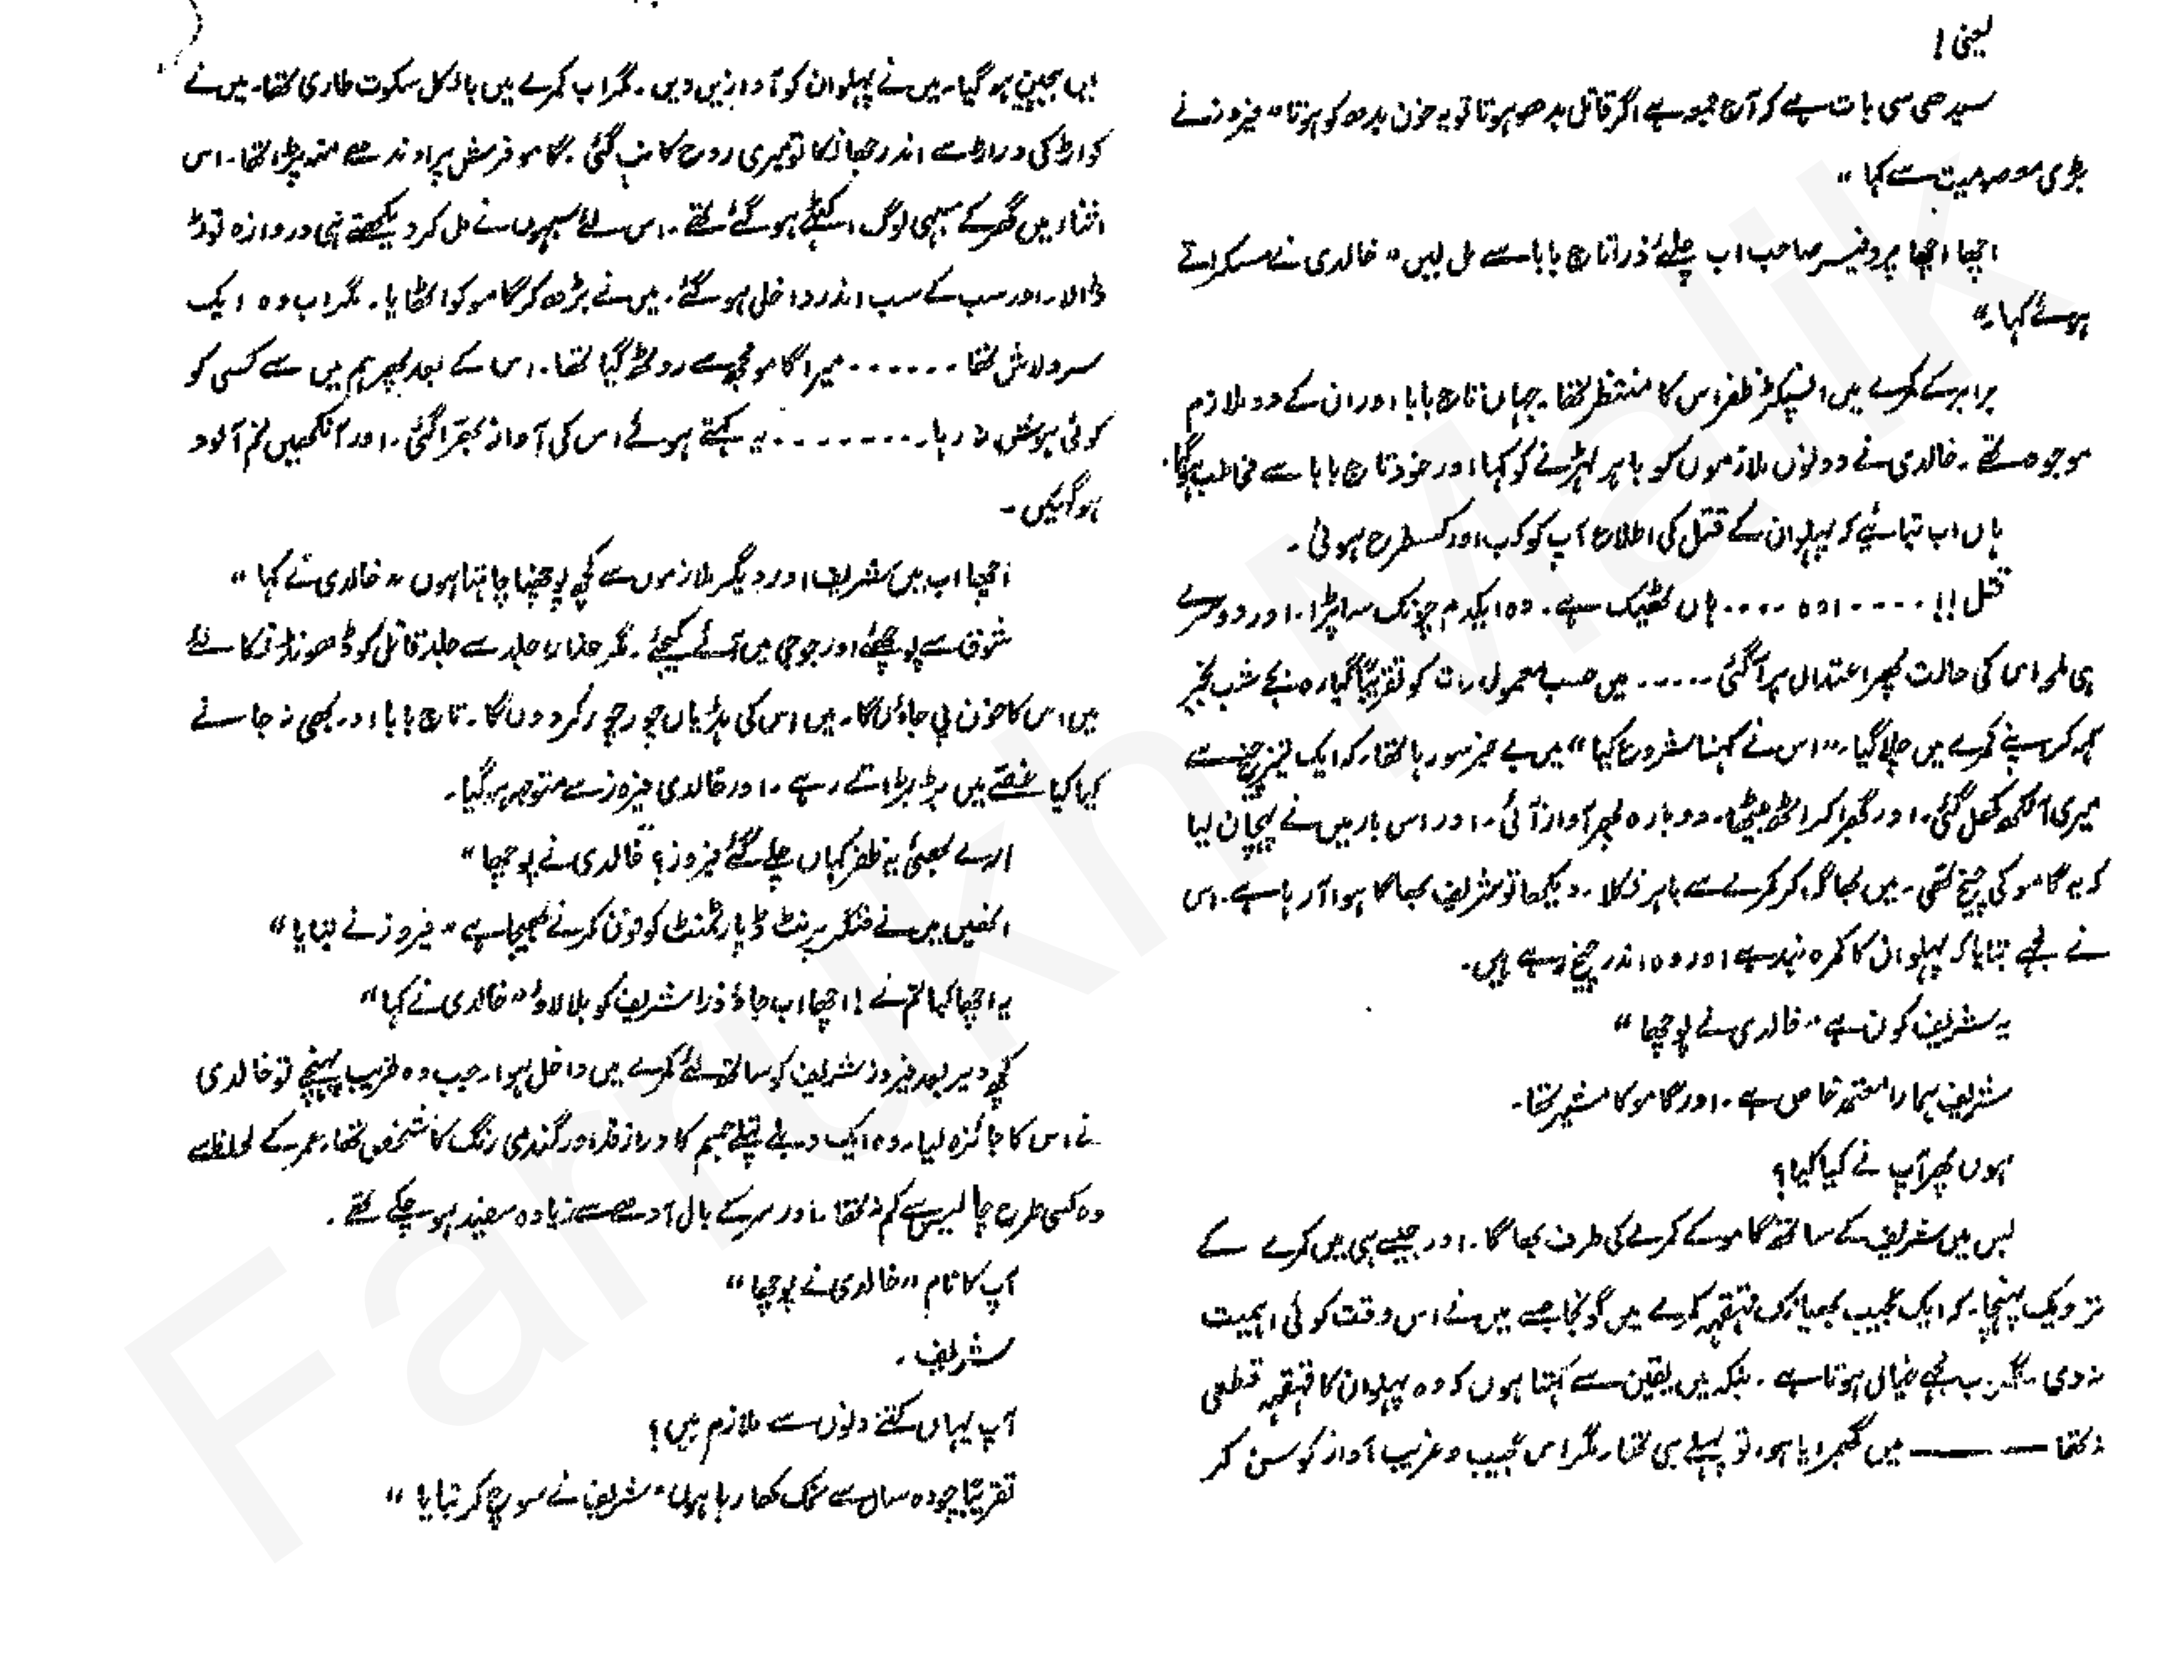 یعنی!
سیدھی سی بات ہے کہ آج جمعہ ہے اگر قاتل بدھو ہوتا تو یہ خون بدھ کو ہوتا" فیروز نے
بڑی معصومیت سے کہا "
اچھا اچھا پروفیسر صاحب اب چلئے ذرا تاج بابا سے مل لیں" خالدی نے مسکراتے
ہوئے کہا۔"
برابر کے کمرے میں انسپکٹر ظفر اس کا منتظر تھا۔ جہاں تاج بابا اور ان کے دو ملازم
موجود تھے۔ خالدی نے دونوں ملازموں کو باہر ٹہرنے کو کہا اور خود تاج بابا سے مخاطب ہوگیا۔
ہاں اب بتائیے کہ پہلوان کے قتل کی اطلاع آپ کو کب اور کسطرح ہوئی۔
قتل!! ۔۔۔۔ اوہ ۔۔۔۔ ہاں ٹھیک ہے۔ وہ ایکدم چونک سا پڑا۔ اور دوسرے
ہی لمحہ اس کی حالت پھر اعتدال پر آگئی ۔۔۔۔۔ میں حسب معمول رات کو تقریباً گیارہ بجے شب بخیر
کہہ کر اپنے کمرے میں چلا گیا۔" اس نے کہنا شروع کیا " میں بے خبر سو رہا تھا۔ کہ ایک تیز چیخ سے
میری آنکھ کھل گئی۔ اور گھبرا کر اٹھ بیٹھا۔ دوبارہ پھر آواز آئی۔ اور اس بار میں نے پہچان لیا
کہ یہ گامو کی چیخ تھی۔ میں بھاگ کر کمرے سے باہر نکلا۔ دیکھا تو شریف بھاگا ہوا آ رہا ہے۔ اس
نے مجھے بتایا کہ پہلوان کا کمرہ بند ہے اور وہ اندر چیخ رہے ہیں۔
یہ شریف کون ہے" خالدی نے پوچھا "
شریف ہمارا معتمد خاص ہے۔ اور گامو کا مشیر تھا۔
ہوں پھر آپ نے کیا کیا؟
بس میں شریف کے ساتھ گامو کے کمرے کی طرف بھاگا۔ اور جیسے ہی میں کمرے کے
نزدیک پہنچا۔ کہ ایک عجیب بھیانک قہقہہ کمرے میں گونجا جسے میں نے اس وقت کوئی اہمیت
نہ دی۔ مگر اب مجھے خیال ہوتا ہے۔ بلکہ میں یقین سے کہتا ہوں کہ وہ پہلوان کا قہقہہ قطعی
نہ تھا ——— میں گھبرایا ہوا تو پہلے ہی تھا۔ مگر اس عجیب و غریب آواز کو سن کر
بے چین ہو گیا۔ میں نے پہلوان کو آوازیں دیں۔ مگر اب کمرے میں بالکل سکوت طاری تھا۔ میں نے
کواڑ کی دراڑ سے اندر جھانکا تو میری روح کانپ گئی۔ گامو فرش پر اوندھے منہ پڑا تھا۔ اس
اثناء میں گھر کے سبھی لوگ اکھٹے ہو گئے تھے۔ اس لئے سبہوں نے مل کر دیکھتے ہی دروازہ توڑ
ڈالا۔ اور سب کے سب اندر داخل ہو گئے۔ میں نے بڑھ کر گامو کو اٹھایا۔ مگر اب وہ ایک
سرد لاش تھا ۔۔۔۔۔۔ میرا گامو مجھ سے روٹھ گیا تھا۔ اس کے بعد پھر ہم میں سے کسی کو
کوئی ہوش نہ رہا۔ ۔۔۔۔۔۔۔ یہ کہتے ہوئے اس کی آواز بھرا گئی۔ اور آنکھیں نم آلود
ہوگئیں۔
اچھا اب میں شریف اور دیگر ملازموں سے کچھ پوچھنا چاہتا ہوں" خالدی نے کہا "
شوق سے پوچھئے اور جو جی میں آئے کیجئے۔ مگر جناب جلد سے جلد قاتل کو ڈھونڈ نکالئے
میں اس کا خون پی جاؤں گا۔ میں اس کی ہڈیاں چور چور کر دوں گا۔ تاج بابا اور بھی نہ جانے
کیا کیا غصے میں بڑبڑاتے رہے۔ اور خالدی فیروز سے متوجہ ہوگیا۔
ارے بھئی یہ ظفر کہاں چلے گئے فیروز؟ خالدی نے پوچھا "
انھیں میں نے فنگر پرنٹ ڈپارٹمنٹ کو فون کرنے بھیجا ہے" فیروز نے بتایا "
یہ اچھا کیا تم نے! اچھا اب جاؤ ذرا شریف کو بلا لاؤ" خالدی نے کہا "
کچھ دیر بعد فیروز شریف کو ساتھ لئے کمرے میں داخل ہوا۔ جب وہ قریب پہنچے تو خالدی
نے اس کا جائزہ لیا۔ وہ ایک دبلے پتلے جسم کا دراز قد اور گندمی رنگ کا شخص تھا۔ عمر کے لحاظ سے
وہ کسی طرح چالیس سے کم نہ تھا۔ اور سر کے بال آدھے سے زیادہ سفید ہو چکے تھے۔
آپ کا نام" خالدی نے پوچھا "
شریف۔
آپ یہاں کتنے دنوں سے ملازم ہیں؟
تقریباً چودہ سال سے نمک کھا رہا ہوں" شریف نے سوچ کر بتایا "
Farrukh Malik